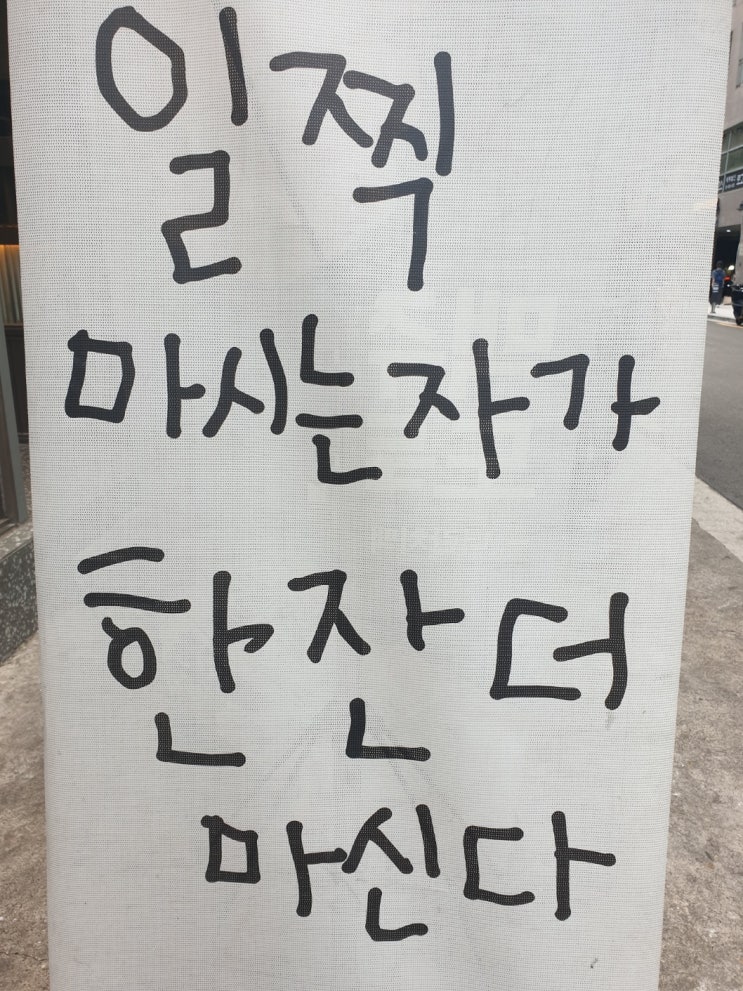 일찍
마시는자가
한잔더
마신다